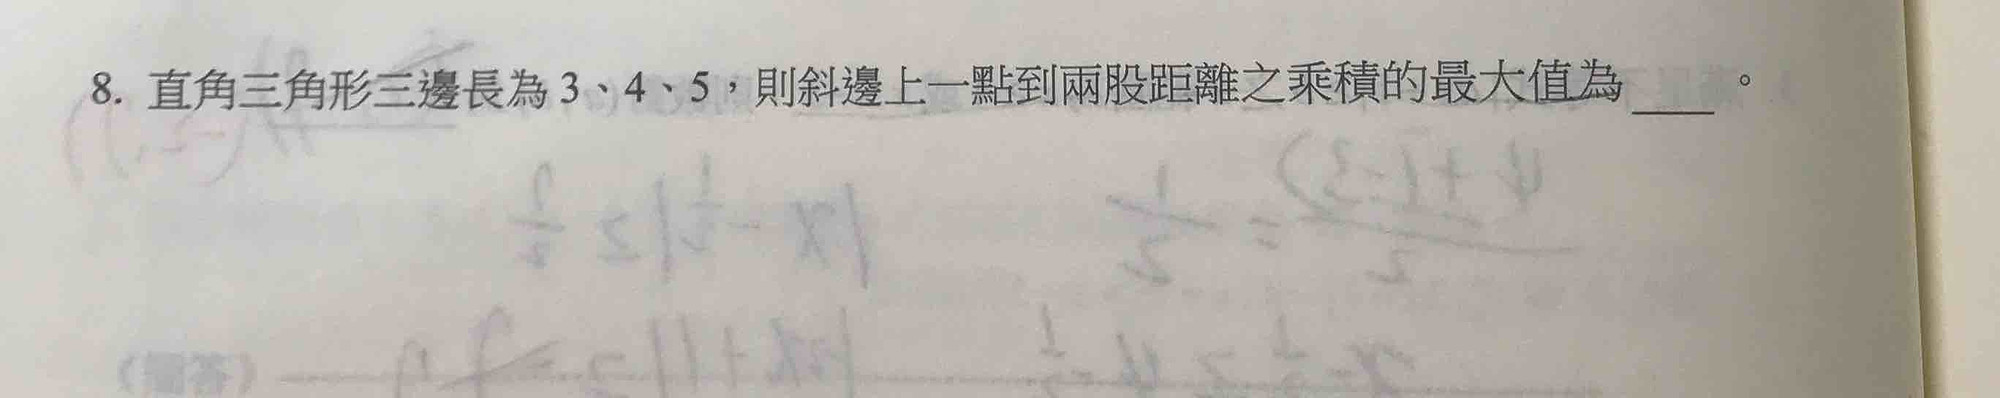 8. 直角三角形三邊長為 3、4、5，則斜邊上一點到兩股距離之乘積的最大值為____。